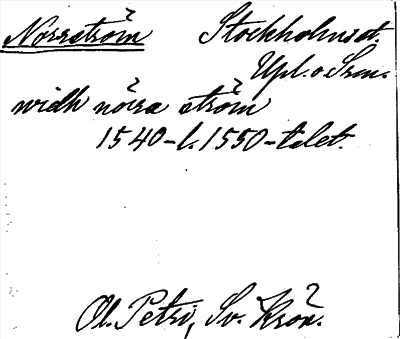 Norrström Stockholms st.
Upl. o Srm.
widh nörra ström
1540-t. 1550-talet.
Ol. Petri, Sv. Krön.